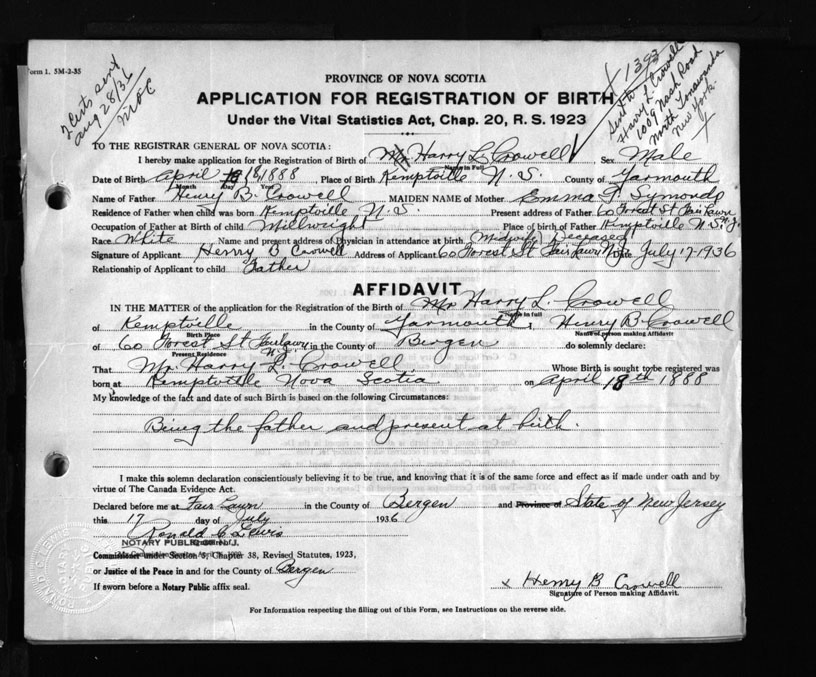 Form 1. 5M-3-35
2 Certs sent
Aug 28/36
X 1393
Sent to
Harry L. Crowell
1009 Nash Road
North Tonawanda
New York.
X
PROVINCE OF NOVA SCOTIA
APPLICATION FOR REGISTRATION OF BIRTH
Under the Vital Statistics Act, Chap. 20, R. S. 1923
TO THE REGISTRAR GENERAL OF NOVA SCOTIA:
I hereby make application for the Registration of Birth of Mr Harry L Crowell Sex Male
Name in Full
Date of Birth April 18 1888, Place of Birth Kemptville N. S. County of Yarmouth
Month Day Year
Name of Father Henry B. Crowell MAIDEN NAME of Mother Emma F. Symonds
Residence of Father when child was born Kemptville N. S. Present address of Father 60 Forest St Fair Lawn N.J.
Occupation of Father at Birth of child Millwright Place of birth of Father Kemptville N. S.
Race White Name and present address of Physician in attendance at birth (Midwife) Deceased
Signature of Applicant Henry B Crowell Address of Applicant 60 Forest St Fair Lawn N.J. Date July 17-1936
Relationship of Applicant to child Father
AFFIDAVIT
IN THE MATTER of the application for the Registration of the Birth of Mr Harry L. Crowell
Name in full
of Kemptville in the County of Yarmouth I Henry B. Crowell
Birth Place Name of person making Affidavit
of 60 Forest St Fairlawn N.J. in the County of Bergen do solemnly declare:
Present Residence
That Mr. Harry L. Crowell Whose Birth is sought to be registered was
born at Kemptville Nova Scotia on April 18th 1888
My knowledge of the fact and date of such Birth is based on the following Circumstances:
Being the father and present at birth.
I make this solemn declaration conscientiously believing it to be true, and knowing that it is of the same force and effect as if made under oath and by
virtue of The Canada Evidence Act.
Declared before me at Fair Lawn in the County of Bergen and Province of State of New Jersey
this 17 day of July 1936
Ronald C Lewis
NOTARY PUBLIC OF N. J.
Commissioner under Section 3, Chapter 38, Revised Statutes, 1923,
or Justice of the Peace in and for the County of Bergen.
If sworn before a Notary Public affix seal.
x Henry B Crowell
Signature of Person making Affidavit.
For Information respecting the filling out of this Form, see Instructions on the reverse side.